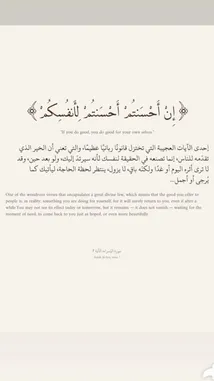 ﴿ إِنْ أَحْسَنتُمْ أَحْسَنتُمْ لِأَنفُسِكُمْ ﴾
"If you do good, you do good for your own selves"
إحدى الآيات العجيبة التي تختزل قانونًا ربانيًا عظيمًا، والتي تعني أن الخير الذي
تقدّمه للناس، إنما تصنعه في الحقيقة لنفسك لأنه سيرتدّ إليك، ولو بعد حين، وقد
لا ترى أثره اليوم أو غدًا ولكنّه باقٍ، لا يزول، ينتظر لحظة الحاجة، ليأتيك كما
يُرجى أو أجمل..
One of the wondrous verses that encapsulates a great divine law, which means that the good you offer to
people is, in reality, something you are doing for yourself, for it will surely return to you, even if after a
while You may not see its effect today or tomorrow, but it remains — it does not vanish — waiting for the
moment of need, to come back to you just as hoped, or even more beautifully